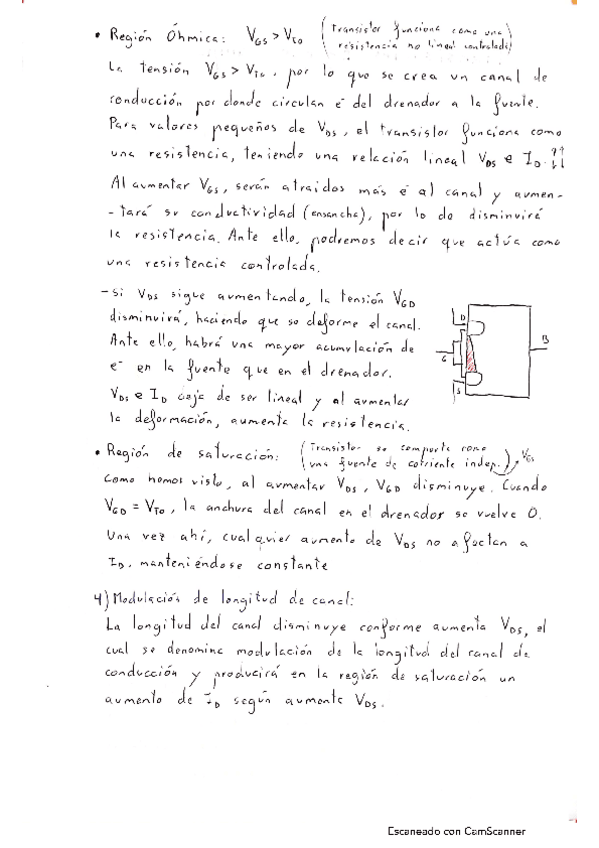 • Región Óhmica: VGS > VTO (Transistor funciona como una
resistencia no lineal controlada)
La tensión VGS > VTO, por lo que se crea un canal de
conducción por donde circulan e⁻ del drenador a la fuente.
Para valores pequeños de VDS, el transistor funciona como
una resistencia, teniendo una relación lineal VDS e ID.
Al aumentar VGS, serán atraidos más e⁻ al canal y aumen-
-tará su conductividad (ensancha), por lo do disminuirá
la resistencia. Ante ello, podremos decir que actúa como
una resistencia controlada.
- Si VDS sigue aumentando, la tensión VGD
disminuirá, haciendo que se deforme el canal.
Ante ello, habrá una mayor acumulación de
e⁻ en la fuente que en el drenador.
VDS e ID deja de ser lineal y al aumentar
la deformación, aumenta la resistencia.
D
B
G
S
• Región de saturación: (Transistor se comporta como
una fuente de corriente indep.) VGS
Como hemos visto, al aumentar VDS, VGD disminuye. Cuando
VGD = VTO, la anchura del canal en el drenador se vuelve 0.
Una vez ahí, cualquier aumento de VDS no afectan a
ID, manteniéndose constante
4) Modulación de longitud de canal:
La longitud del canal disminuye conforme aumenta VDS, el
cual se denomina modulación de la longitud del canal de
conducción y producirá en la región de saturación un
aumento de ID según aumente VDS.
Escaneado con CamScanner